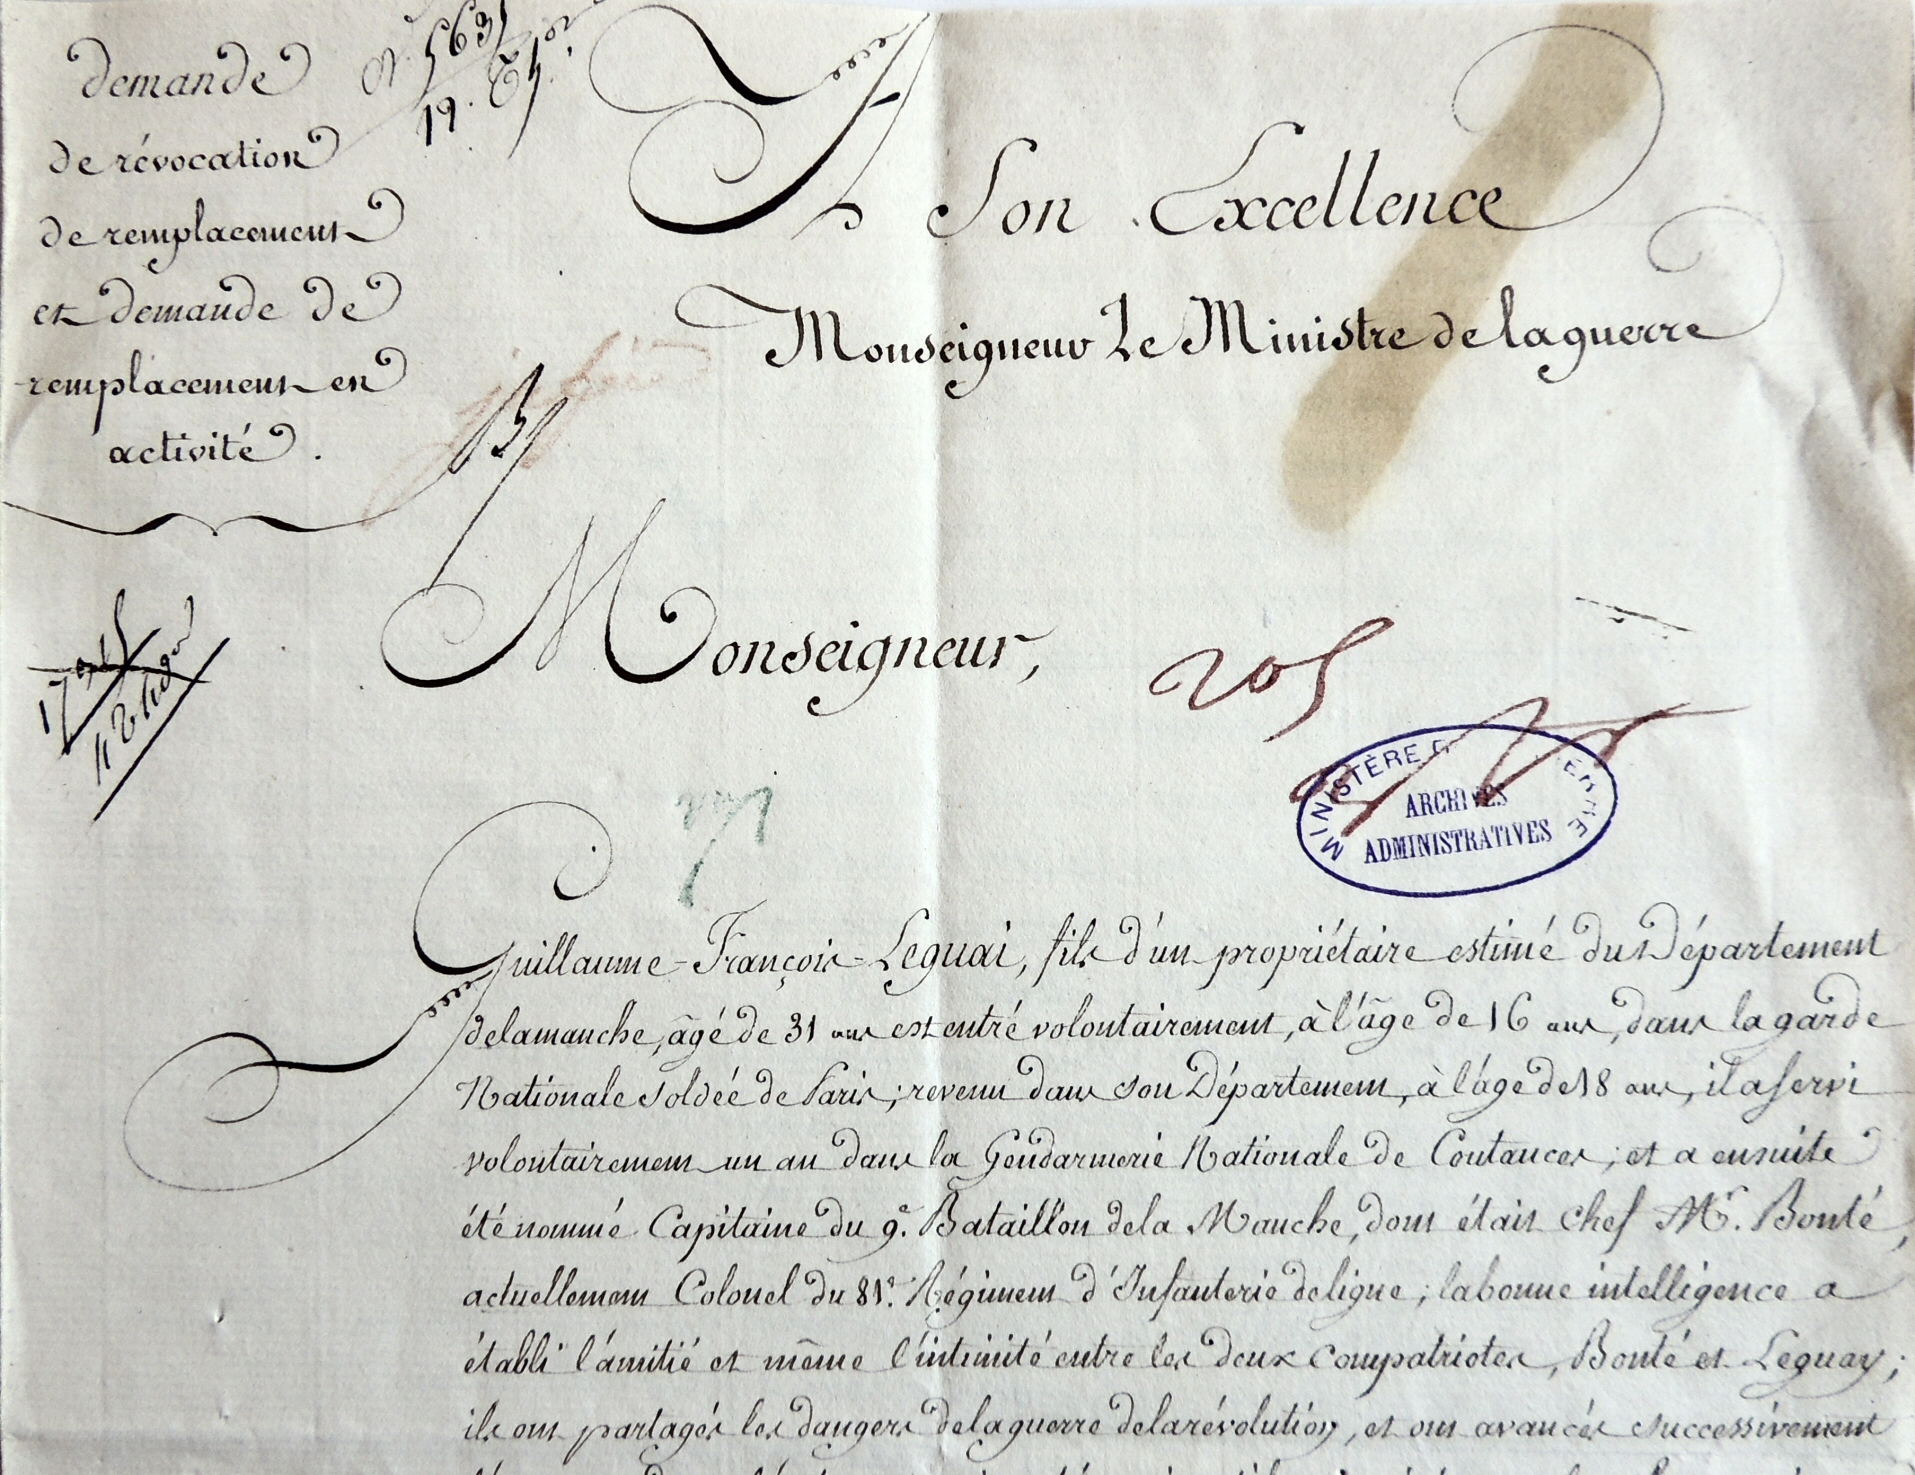 demande
de révocation
de remplacement
et demande de
remplacement en
activité.
N. 5631
19.
A Son Excellence
Monseigneur Le Ministre de la guerre
Monseigneur,
205
MINISTÈRE D ERRE
ARCHIVES
ADMINISTRATIVES
Guillaume-François-Leguai, fils d'un propriétaire estimé du Département
de la manche, âgé de 31 ans est entré volontairement, à l'âge de 16 ans, dans la garde
Nationale soldée de Paris; revenu dans son Département, à l'âge de 18 ans, il a servi
volontairement un an dans la Gendarmerie Nationale de Coutances; et a ensuite
été nommé Capitaine du 9e. Bataillon de la Manche, dont était chef Mr. Bonté,
actuellement Colonel du 81e. Régiment d'Infanterie de ligne; la bonne intelligence a
établi l'amitié et même l'intimité entre les deux compatriotes, Bonté et Leguay;
ils ont partagés les dangers de la guerre de la révolution, et ont avancés successivement